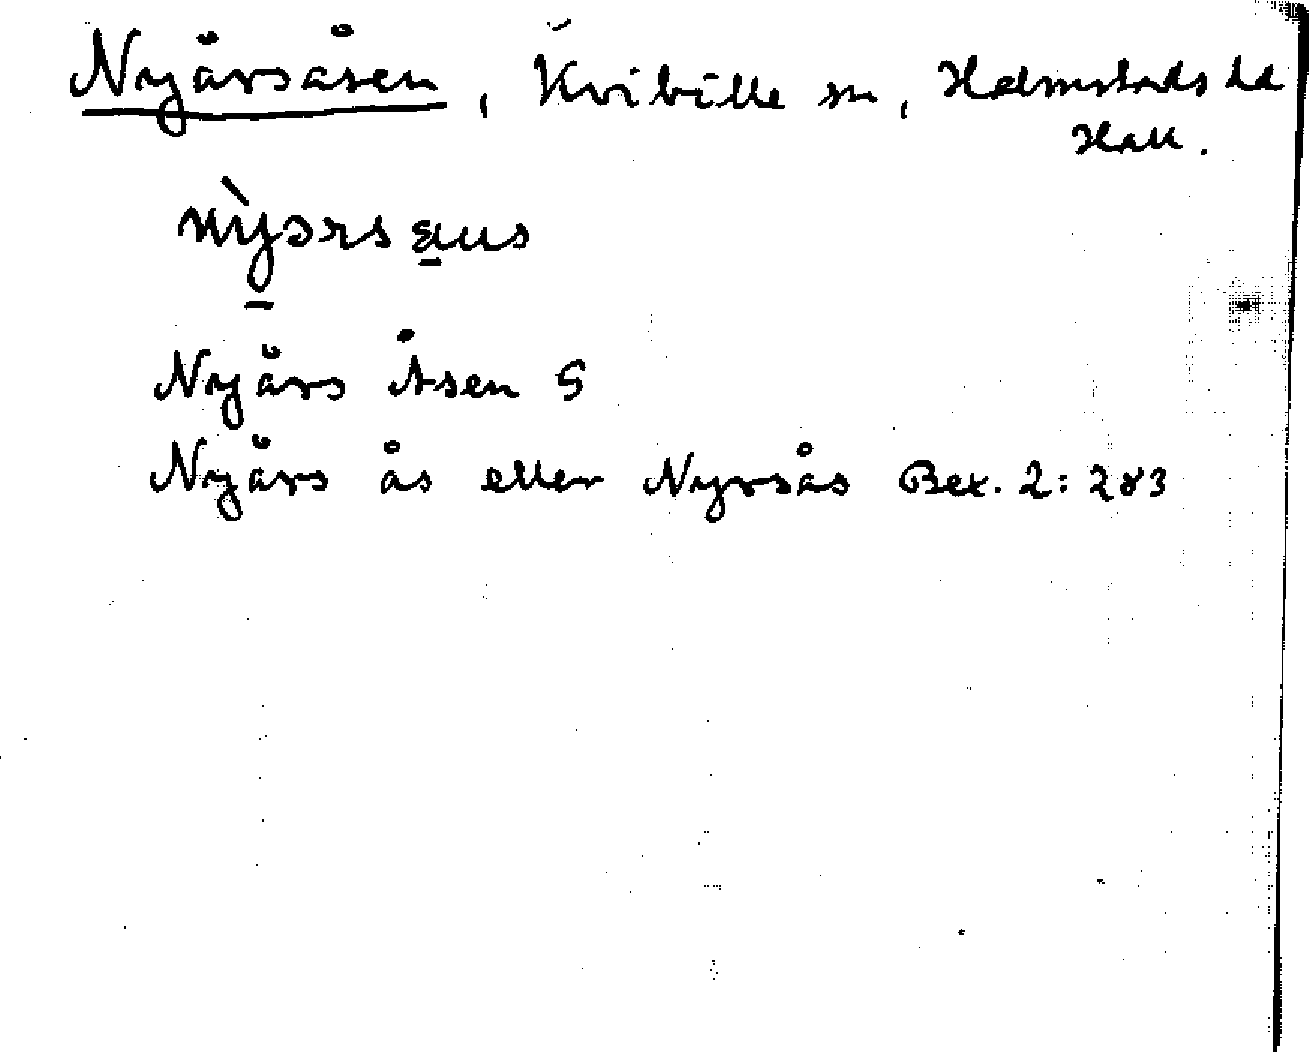 Nyårsåsen, Kvibille sn, Halmstads hd
Hall.
Nyårs Åsen S
Nyårs ås eller Nyrsås Bex. 2: 283